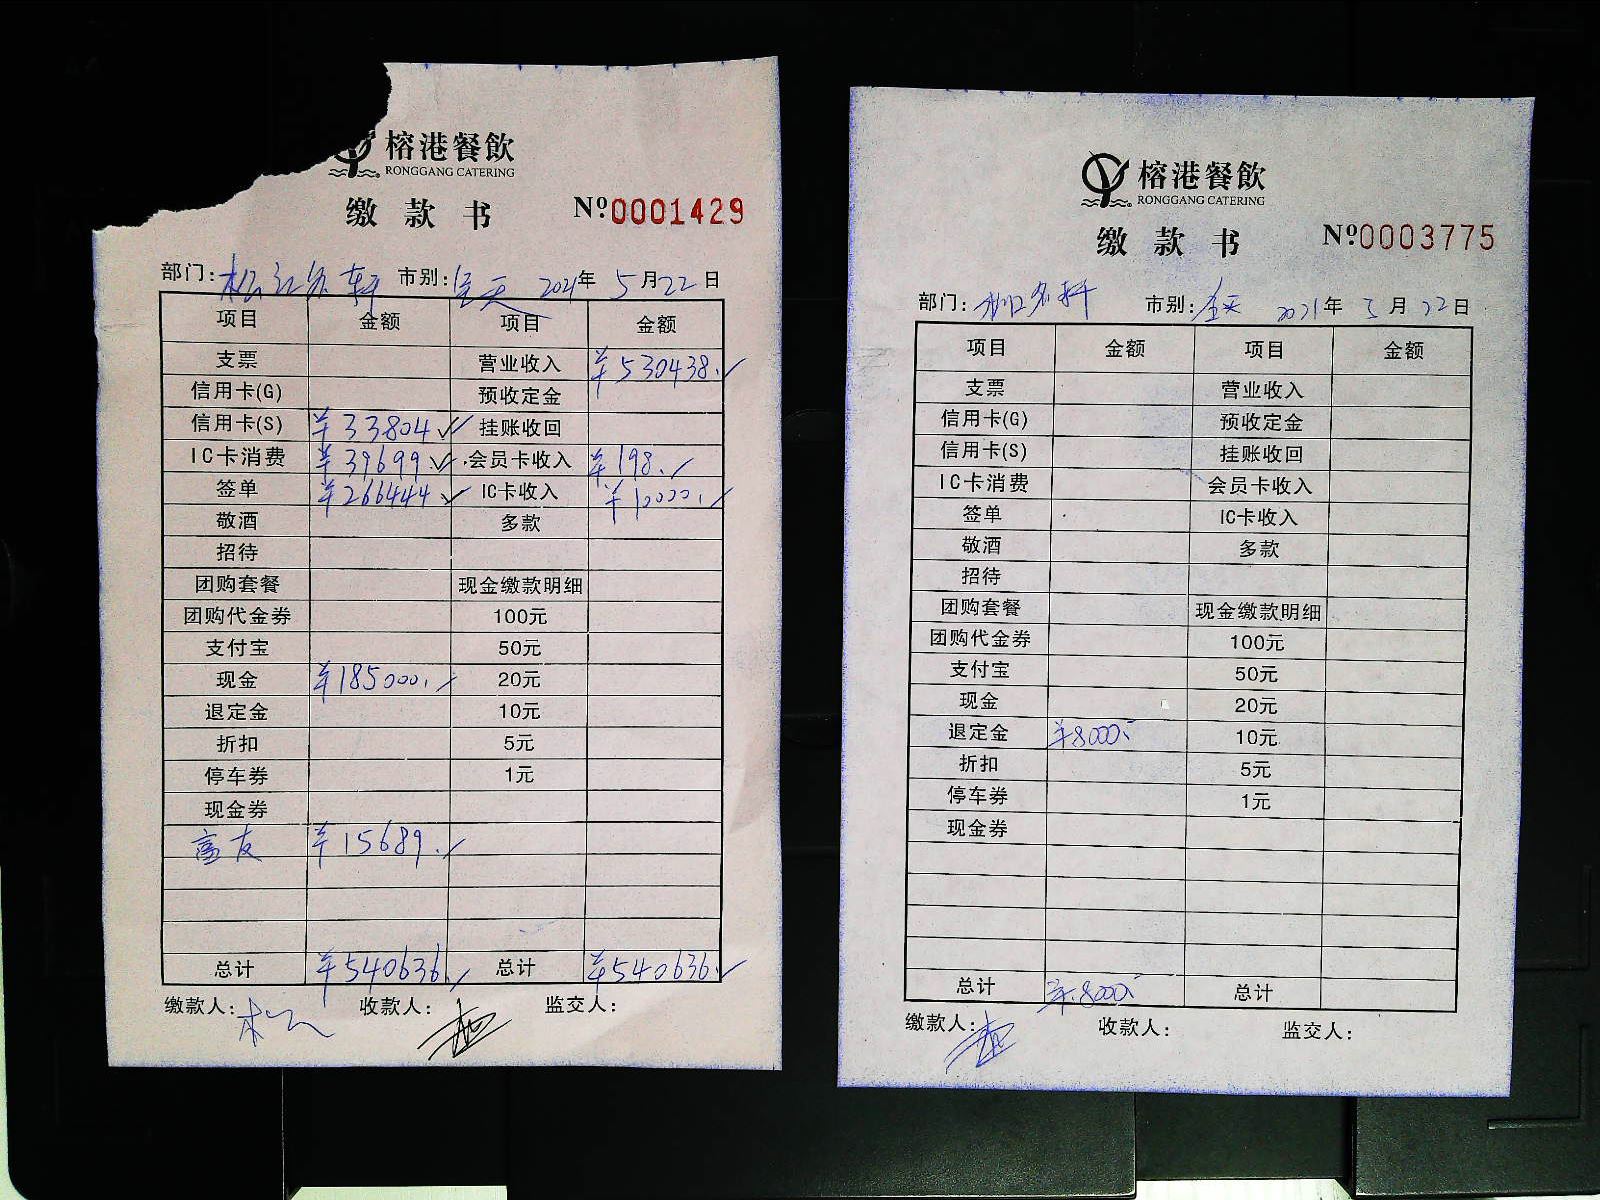 榕港餐飲
RONGGANG CATERING
缴款书 №0001429
部门: 松江名轩 市别: 全天 2021年 5月22日
项目 金额 项目 金额
支票 营业收入 ¥530438.
信用卡(G) 预收定金
信用卡(S) ¥33804 挂账收回
IC卡消费 ¥39699 会员卡收入 ¥198.
签单 ¥266444 IC卡收入 ¥10000.
敬酒 多款
招待
团购套餐 现金缴款明细
团购代金券 100元
支付宝 50元
现金 ¥185000. 20元
退定金 10元
折扣 5元
停车券 1元
现金券
¥15689.
总计 ¥540636. 总计 ¥540636.
缴款人: 收款人: 监交人:
榕港餐飲
RONGGANG CATERING
缴款书 №0003775
部门: 松江名轩 市别: 全天 2021年 5月22日
项目 金额 项目 金额
支票 营业收入
信用卡(G) 预收定金
信用卡(S) 挂账收回
IC卡消费 会员卡收入
签单 IC卡收入
敬酒 多款
招待
团购套餐 现金缴款明细
团购代金券 100元
支付宝 50元
现金 20元
退定金 ¥8000. 10元
折扣 5元
停车券 1元
现金券
总计 ¥8000. 总计
缴款人: 收款人: 监交人: